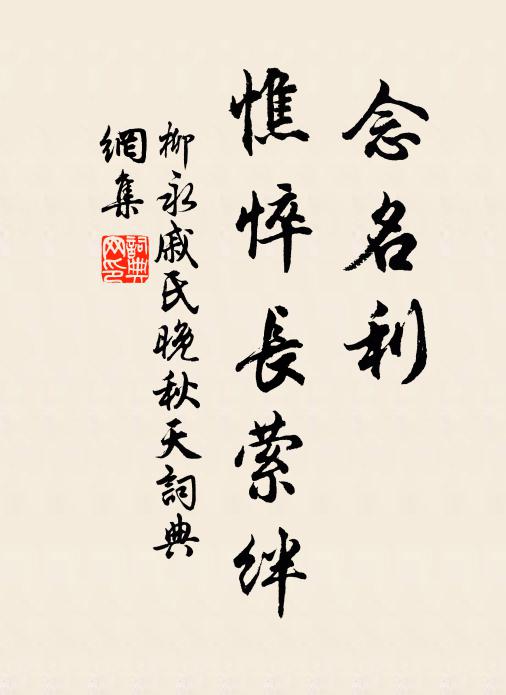 念名利
憔悴長縈絆
柳永戚氏晚秋天詞典
網集
詞典網印